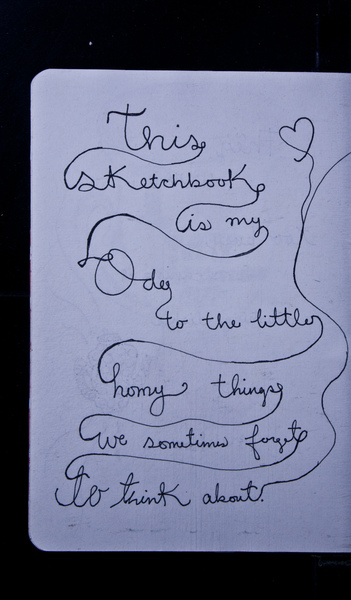 This
sketchbook
is my
Ode
to the little
homy things
we sometimes forget
to think about.